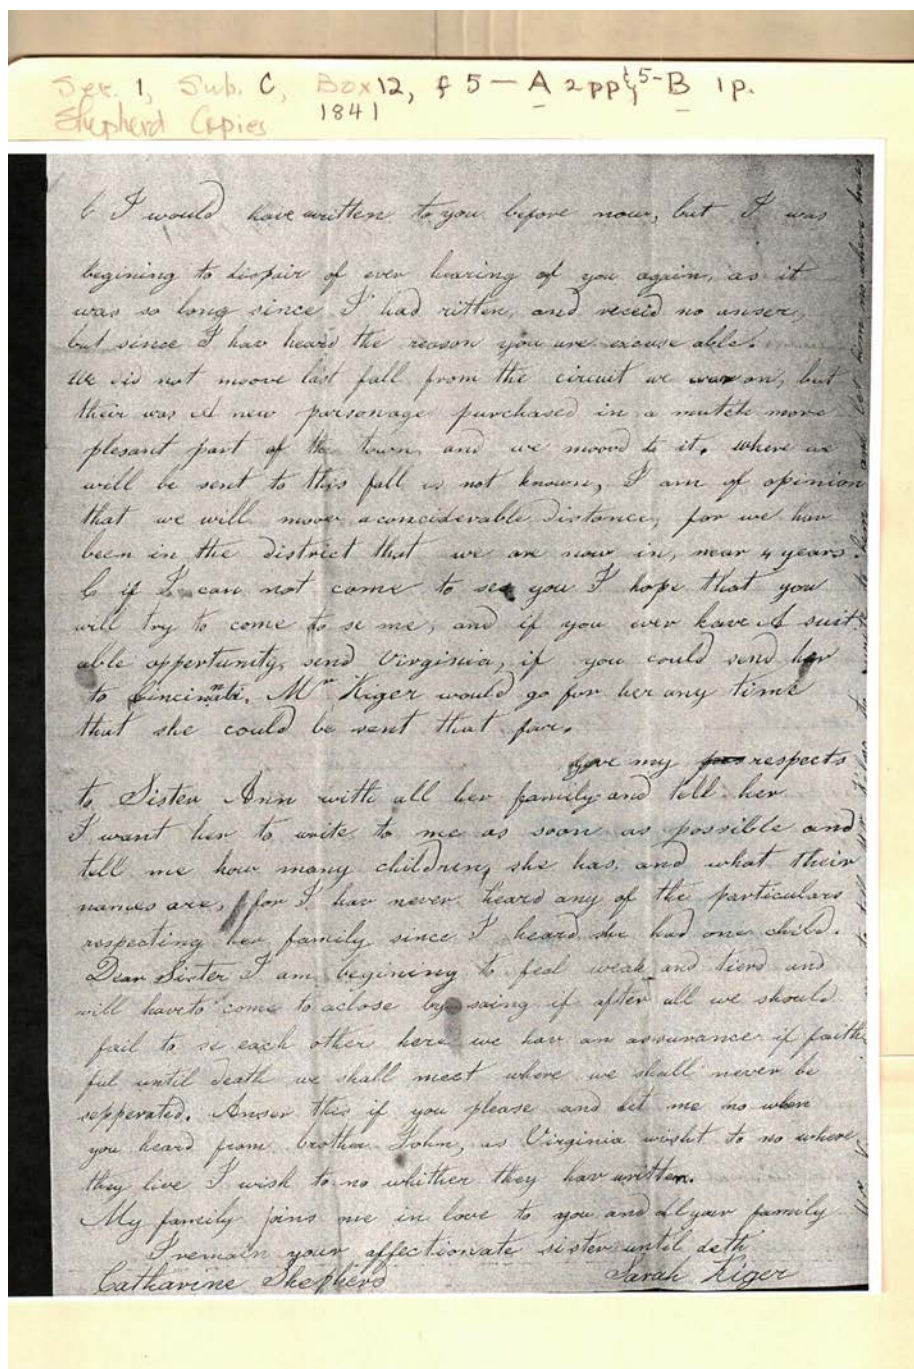 Ser. 1, Sub. C, Box 12, f 5 — A 2pp & 5-B 1p.
Shepherd Copies 1841
I would have written to you before now, but I was
begining to dispair of ever hearing of you again, as it
was so long since I had ritten, and receid no anser,
but since I hav heard the reason you are excuse able.
We did not moove last fall from the circuit we war on, but
their was A new parsonage purchased in a mutch more
plesant part of the town, and we moovd to it, where we
will be sent to this fall is not known, I am of opinion
that we will moove aconciderable distance, for we hav
been in the district that we are now in, near 4 years.
if I can not come to see you I hope that you
will try to come to se me, and if you ever have A suit
able oppertunity, send Virginia, if you could send her
to Cincinnati, Mr Kiger would go for her any time
that she could be sent that far.
give my respects
to Sister Ann with all her family and tell her
I want her to write to me as soon as possible and
tell me how many children, she has, and what their
names are, for I hav never heard any of the particulars
respecting her family since I heard she had one child.
Dear Sister I am begining to feal weak and tierd and
will haveto come to aclose by saing if after all we should
fail to se each other here we hav an assurance if faith
ful until death we shall meet where we shall never be
sepperated. Anser this if you please and let me no when
you heard from brother John, as Virginia wisht to no where
they live I wish to no whither they hav written.
My family joins me in love to you and all your family
I remain your affectionate sister until deth
Catharine Shepherd Sarah Kiger